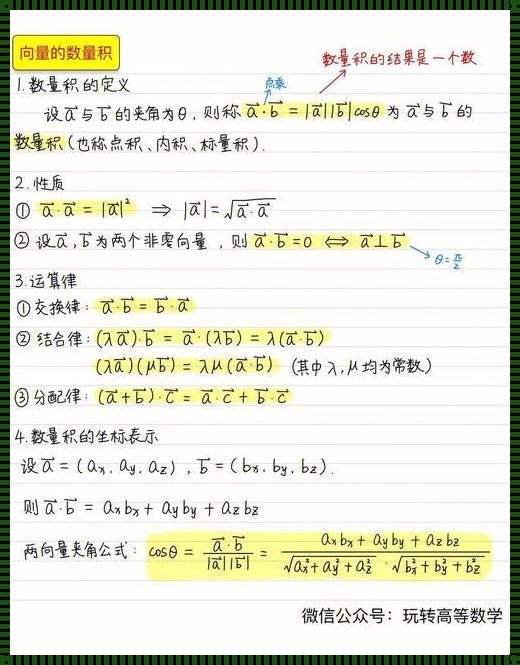 向量的数量积
数量积的结果是一个数
1.数量积的定义
点乘
设a⃗与b⃗的夹角为θ，则称 a⃗·b⃗ = |a⃗||b⃗|cosθ 为a⃗与b⃗的
数量积(也称点积、内积、标量积).
2.性质
① a⃗·a⃗ = |a⃗|² ⇒ |a⃗| = √(a⃗·a⃗)
② 设a⃗,b⃗为两个非零向量，则 a⃗·b⃗=0 ⇔ a⃗⊥b⃗
θ=π/2
3.运算律
① 交换律: a⃗·b⃗ = b⃗·a⃗
② 结合律: (λa⃗)·b⃗ = a⃗·(λb⃗) = λ(a⃗·b⃗)
(λa⃗)(μb⃗) = λμ(a⃗·b⃗) (其中λ,μ均为常数)
③ 分配律: (a⃗+b⃗)·c⃗ = a⃗·c⃗ + b⃗·c⃗
4.数量积的坐标表示
设a⃗ = (aₓ, a_y, a_z), b⃗ = (bₓ, b_y, b_z).
则a⃗·b⃗ = aₓbₓ + a_yb_y + a_zb_z
两向量夹角公式: cosθ = a⃗·b⃗/(|a⃗||b⃗|) = (aₓbₓ + a_yb_y + a_zb_z)/(√(aₓ²+a_y²+a_z²)·√(bₓ²+b_y²+b_z²))
微信公众号：玩转高等数学